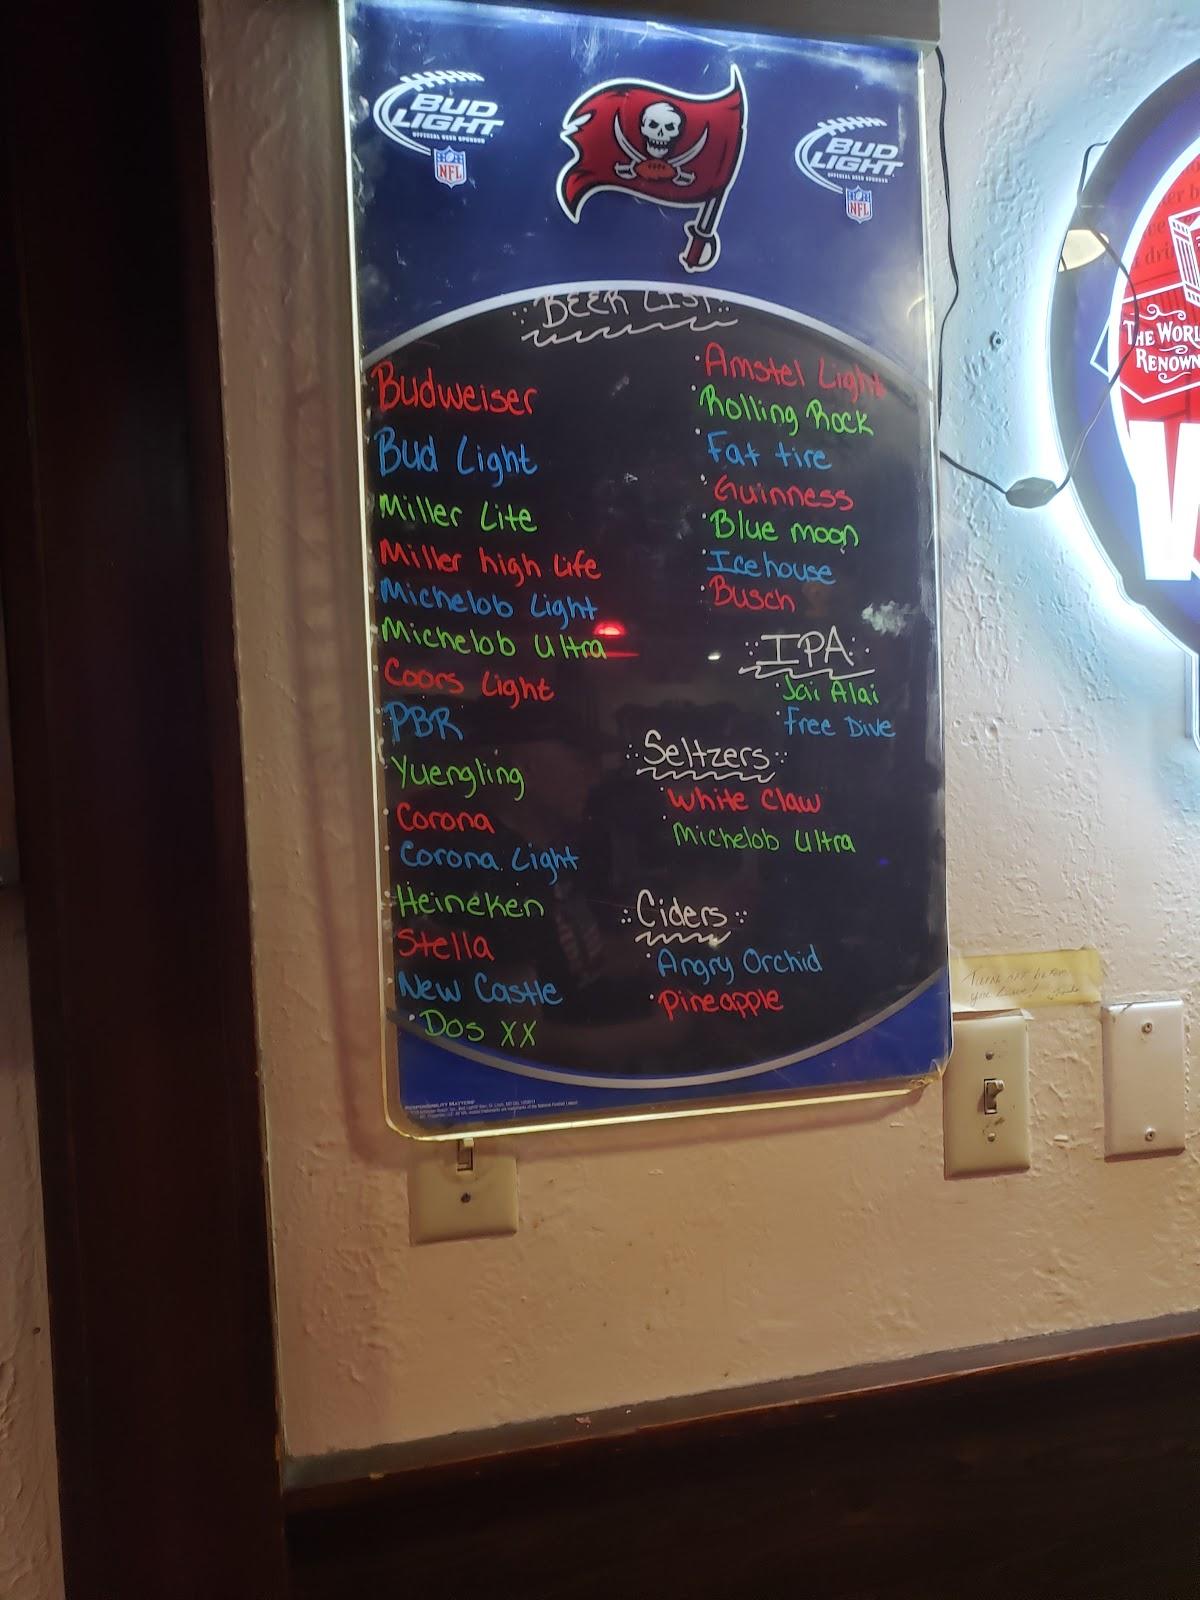 BUD
LIGHT
OFFICIAL BEER SPONSOR
NFL
BUD
LIGHT
OFFICIAL BEER SPONSOR
NFL
BEER LIST
Budweiser
Bud Light
Miller Lite
Miller high Life
Michelob Light
Michelob Ultra
Coors Light
PBR
Yuengling
Corona
Corona Light
Heineken
Stella
New Castle
Dos XX
Amstel Light
Rolling Rock
Fat tire
Guinness
Blue moon
Icehouse
Busch
IPA
Jai Alai
Free Dive
Seltzers
White Claw
Michelob Ultra
Ciders
Angry Orchid
Pineapple
RESPONSIBILITY MATTERS
THE WORL
RENOWN
Turn off before
you leave!